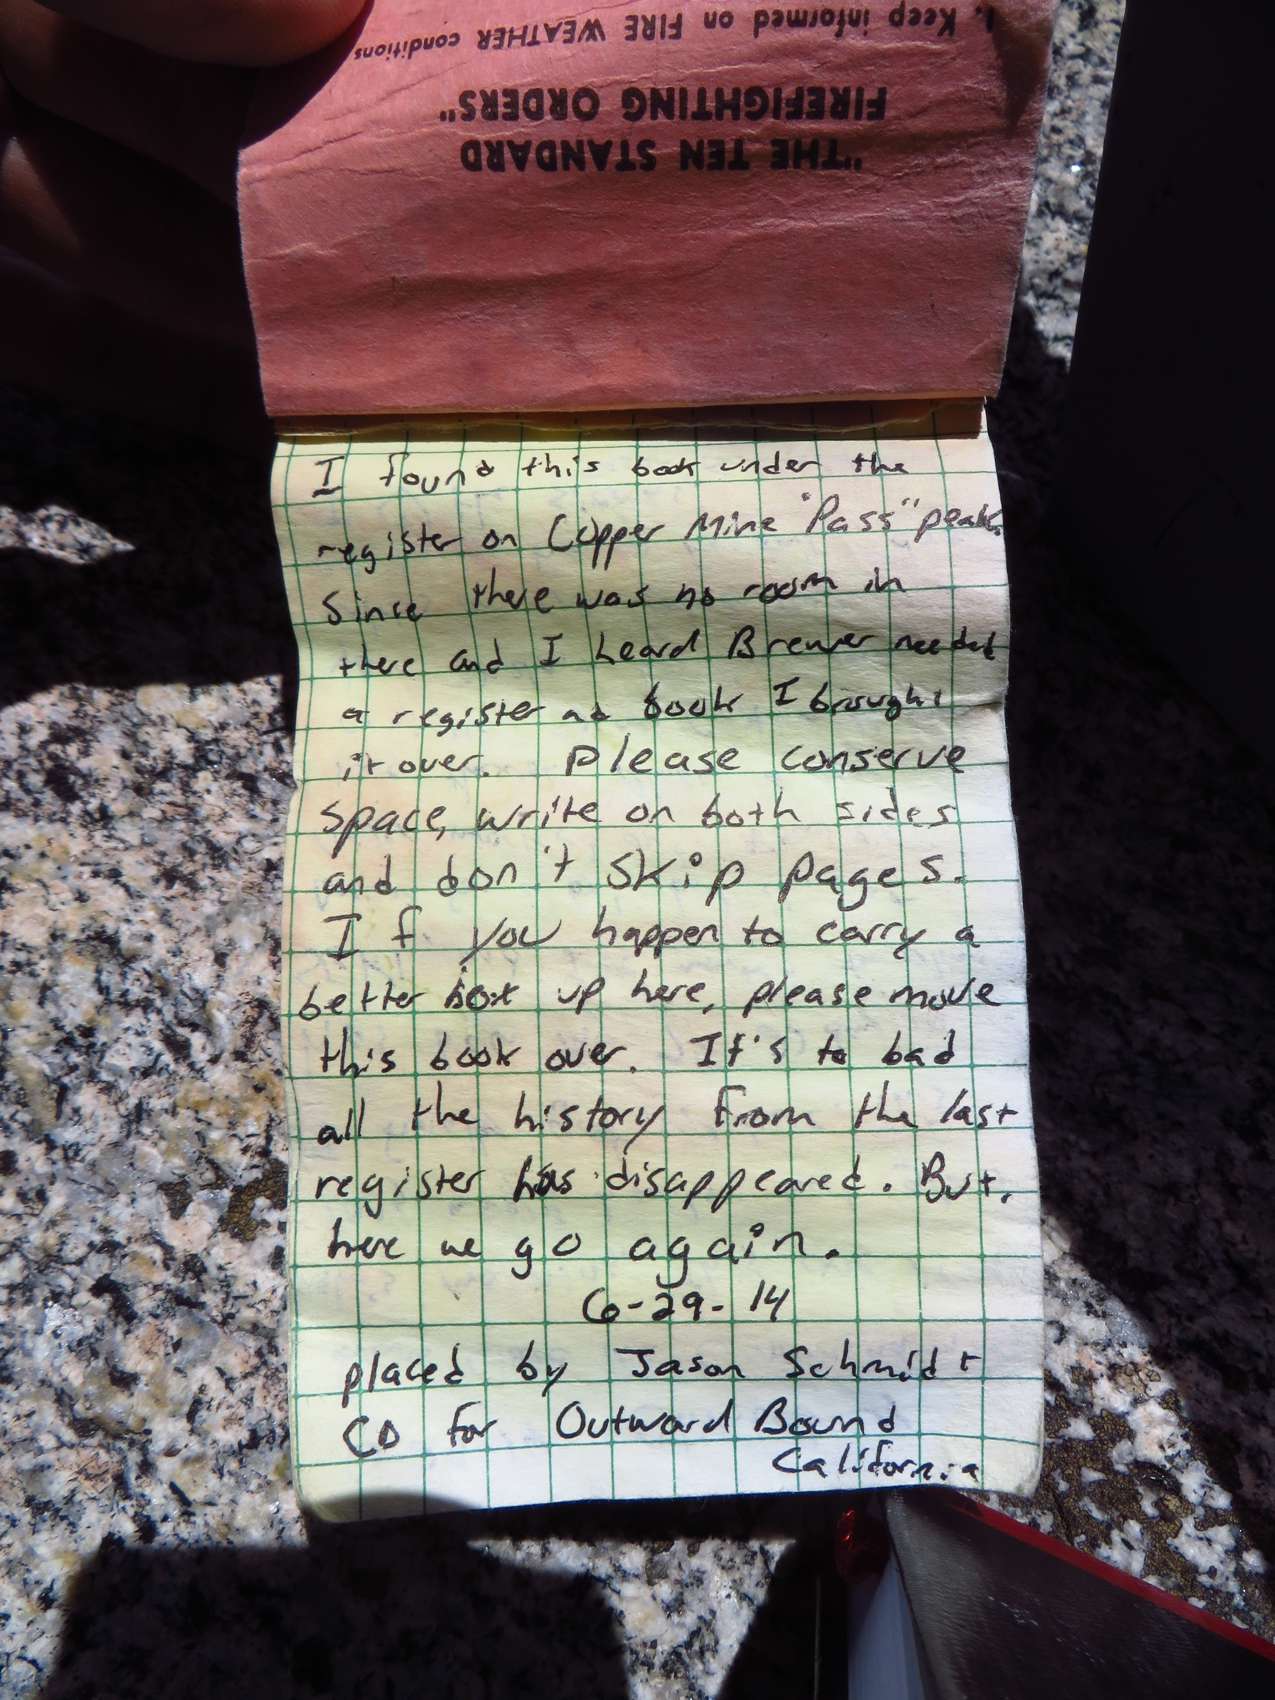 "THE TEN STANDARD
FIREFIGHTING ORDERS"
1. Keep informed on FIRE WEATHER conditions
I found this book under the
register on Copper Mine "Pass" peak.
Since there was no room in
there and I heard Brewer needed
a register book I brought
it over. Please conserve
space, write on both sides
and don't skip pages.
If you happen to carry a
better box up here, please move
this book over. It's to bad
all the history from the last
register has disappeared. But,
here we go again.
6-29-14
placed by Jason Schmidt
CD for Outward Bound
California